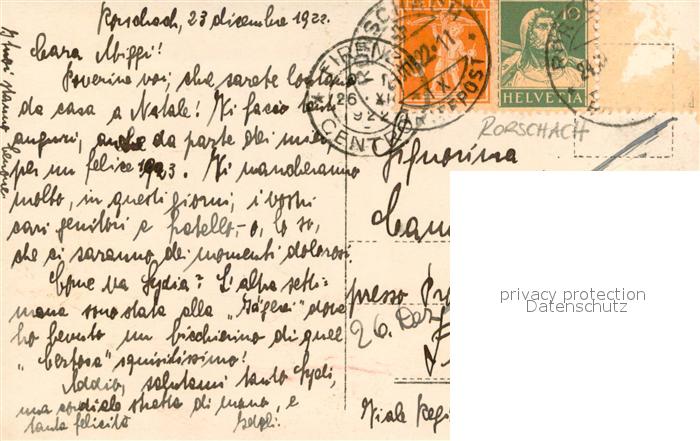 Rorschach, 23 dicembre 1922.
Cara Mippi!
Poverina voi, che sarete lontana
da casa a Natale! Vi faccio tanti
auguri, anche da parte dei miei
per un felice 1923. Vi mancheranno
molto, in questi giorni, i vostri
cari genitori e fratello, - o, lo so,
che ci saranno dei momenti dolorosi.
Come va Lydia? L'altra setti-
mana sono stata alla "Jägerei" dove
ho bevuto un bicchierino di quel
"Certosa" squisitissimo!
Addio, salutami tanto Lydi,
una cordiale stretta di mano, e
tanta felicità
I tuoi stanno benone
HELVETIA
HELVETIA
FIRENZE
26 XII
922
CENTRO
BRIEFPOST
RORSCHACH
Signorina
presso
26. Dez
Viale Regi
privacy protection
Datenschutz